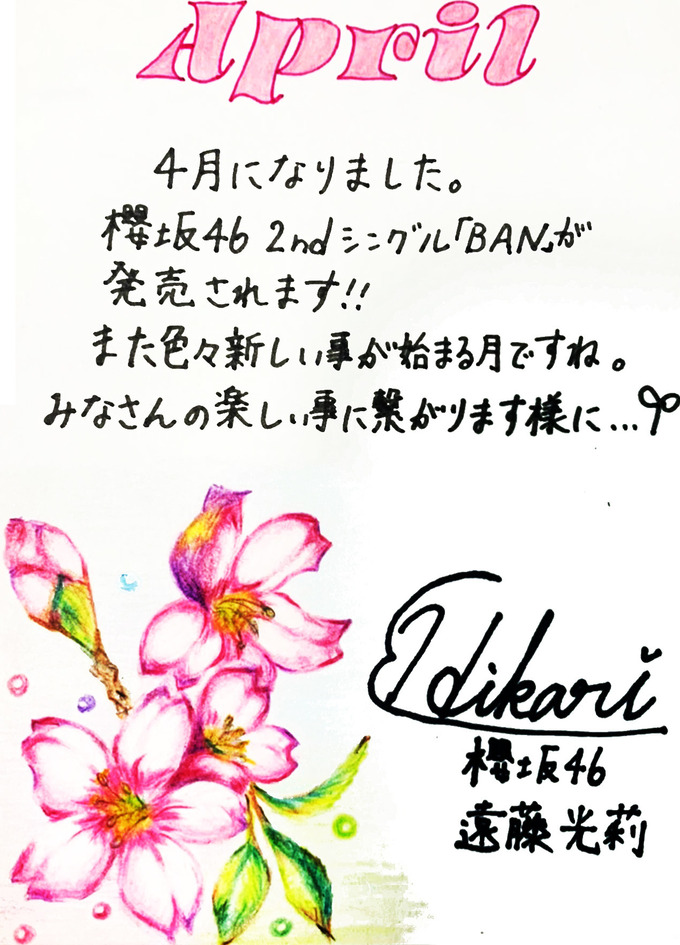 April
4月になりました。
櫻坂46 2ndシングル「BAN」が
発売されます!!
また色々新しい事が始まる月ですね。
みなさんの楽しい事に繋がります様に...
Hikari
櫻坂46
遠藤光莉